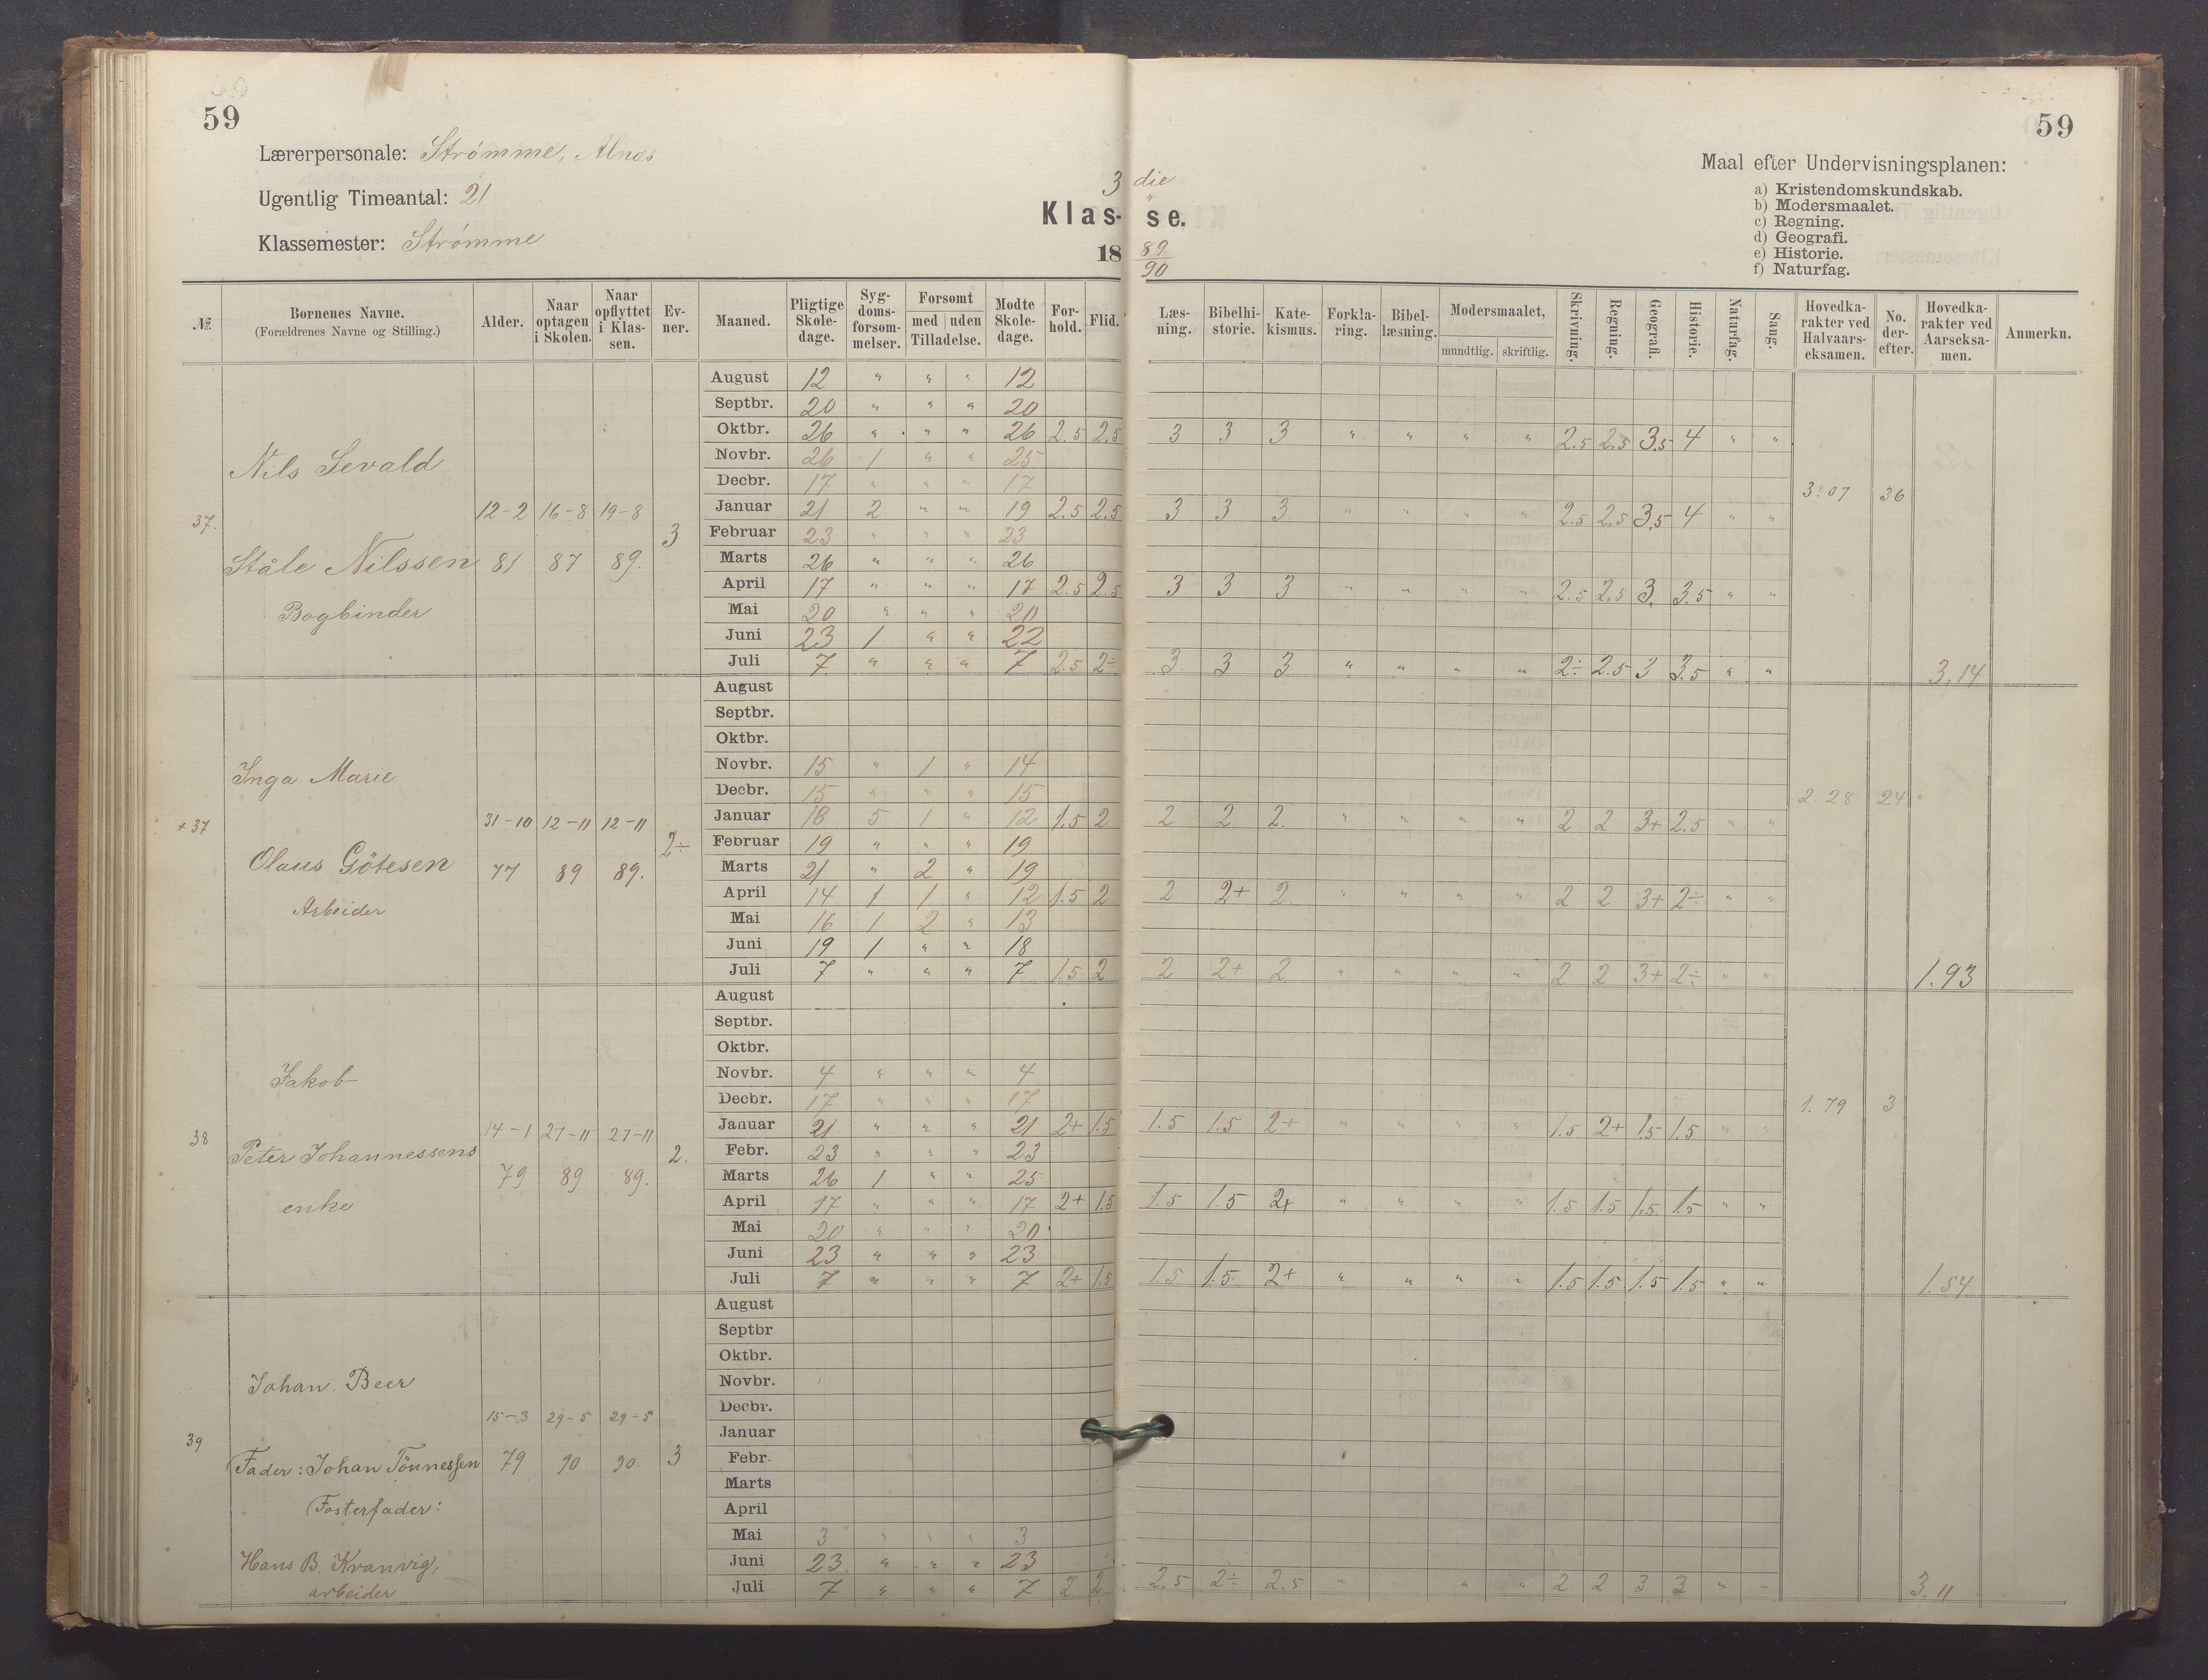 59
59
Lærerpersonale: Strömme, Alnæs
Ugentlig Timeantal: 21
Klassemester: Strömme
3 die
Klas- se.
18 89/90
Maal efter Undervisningsplanen:
a) Kristendomskundskab.
b) Modersmaalet.
c) Regning.
d) Geografi.
e) Historie.
f) Naturfag.
№ Bornenes Navne. (Forældrenes Navne og Stilling.) Alder. Naar optagen i Skolen. Naar opflyttet i Klassen. Evner. Maaned. Pligtige Skoledage. Sygdomsforsømmelser. Forsømt med uden Tilladelse. Mødte Skoledage. Forhold. Flid. Læsning. Bibelhistorie. Katekismus. Forklaring. Bibellæsning. Modersmaalet, mundtlig. skriftlig. Skrivning. Regning. Geografi. Historie. Naturfag. Sang. Hovedkarakter ved Halvaarseksamen. No. derefter. Hovedkarakter ved Aarseksamen. Anmerkn.
37. Nils Sevald
12-2 16-8 19-8
81 87 89. 3
Ståle Nilssen
Bogbinder
August 12 " " " 12
Septbr. 20 " " " 20
Oktbr. 26 " " " 26 2.5 2.5 3 3 3 " " " " 2.5 2.5 3.5 4 " "
Novbr. 26 1 " " 25
Decbr. 17 " " " 17
3.07 36
Januar 21 2 " " 19 2.5 2.5 3 3 3 " " " " 2.5 2.5 3.5 4 " "
Februar 23 " " " 23
Marts 26 " " " 26
April 17 " " " 17 2.5 2.5 3 3 3 " " " " 2.5 2.5 3. 3.5 " "
Mai 20 " " " 20
Juni 23 1 " " 22
Juli 7 " " " 7 2.5 2÷ 3. 3 3 " " " " 2÷ 2.5 3 3.5 " " 3.14
+ 37 Inga Marie
31-10 12-11 12-11
77 89 89. 2÷
Olaus Götesen
Arbeider
August
Septbr.
Oktbr.
Novbr. 15 " 1 " 14
Decbr. 15 " " " 15
2.28 24
Januar 18 5 1 " 12 1.5 2 2 2 2. " " " " 2 2 3+ 2.5 " "
Februar 19 " " " 19
Marts 21 " 2 " 19
April 14 1 1 " 12 1.5 2 2 2+ 2. " " " " 2 2 3+ 2÷ " "
Mai 16 1 2 " 13
Juni 19 1 " " 18
Juli 7 " " " 7 1.5 2 2 2+ 2 " " " " 2 2 3+ 2÷ " " 1.93
38 Jakob
14-1 27-11 27-11
79 89 89. 2.
Peter Johannessens
enke
August
Septbr.
Oktbr.
Novbr. 4 " " " 4
Decbr. 17 " " " 17
1.79 3
Januar 21 " " " 21 2+ 1.5 1.5 1.5 2+ " " " " 1.5 2+ 1.5 1.5 " "
Febr. 23 " " " 23
Marts 26 1 " " 25
April 17 " " " 17 2+ 1.5 1.5 1.5 2+ " " " " 1.5 1.5 1.5. 1.5 " "
Mai 20 " " " 20
Juni 23 " " " 23
Juli 7 " " " 7 2+ 1.5 1.5 1.5 2+ " " " " 1.5 1.5 1.5 1.5 " " 1.54
39 Johan Beer
15-3 29-5 29-5
79 90 90 3
Fader: Johan Tönnessen
Fosterfader:
Hans B. Kvanvig,
arbeider
August
Septbr
Oktbr.
Novbr.
Decbr.
Januar
Febr.
Marts
April
Mai 3 " " " 3
Juni 23 " " " 23
Juli 7 " " " 7 2 2 2.5 2÷ 2.5 " " " 2 2 3 3 " - 3.11